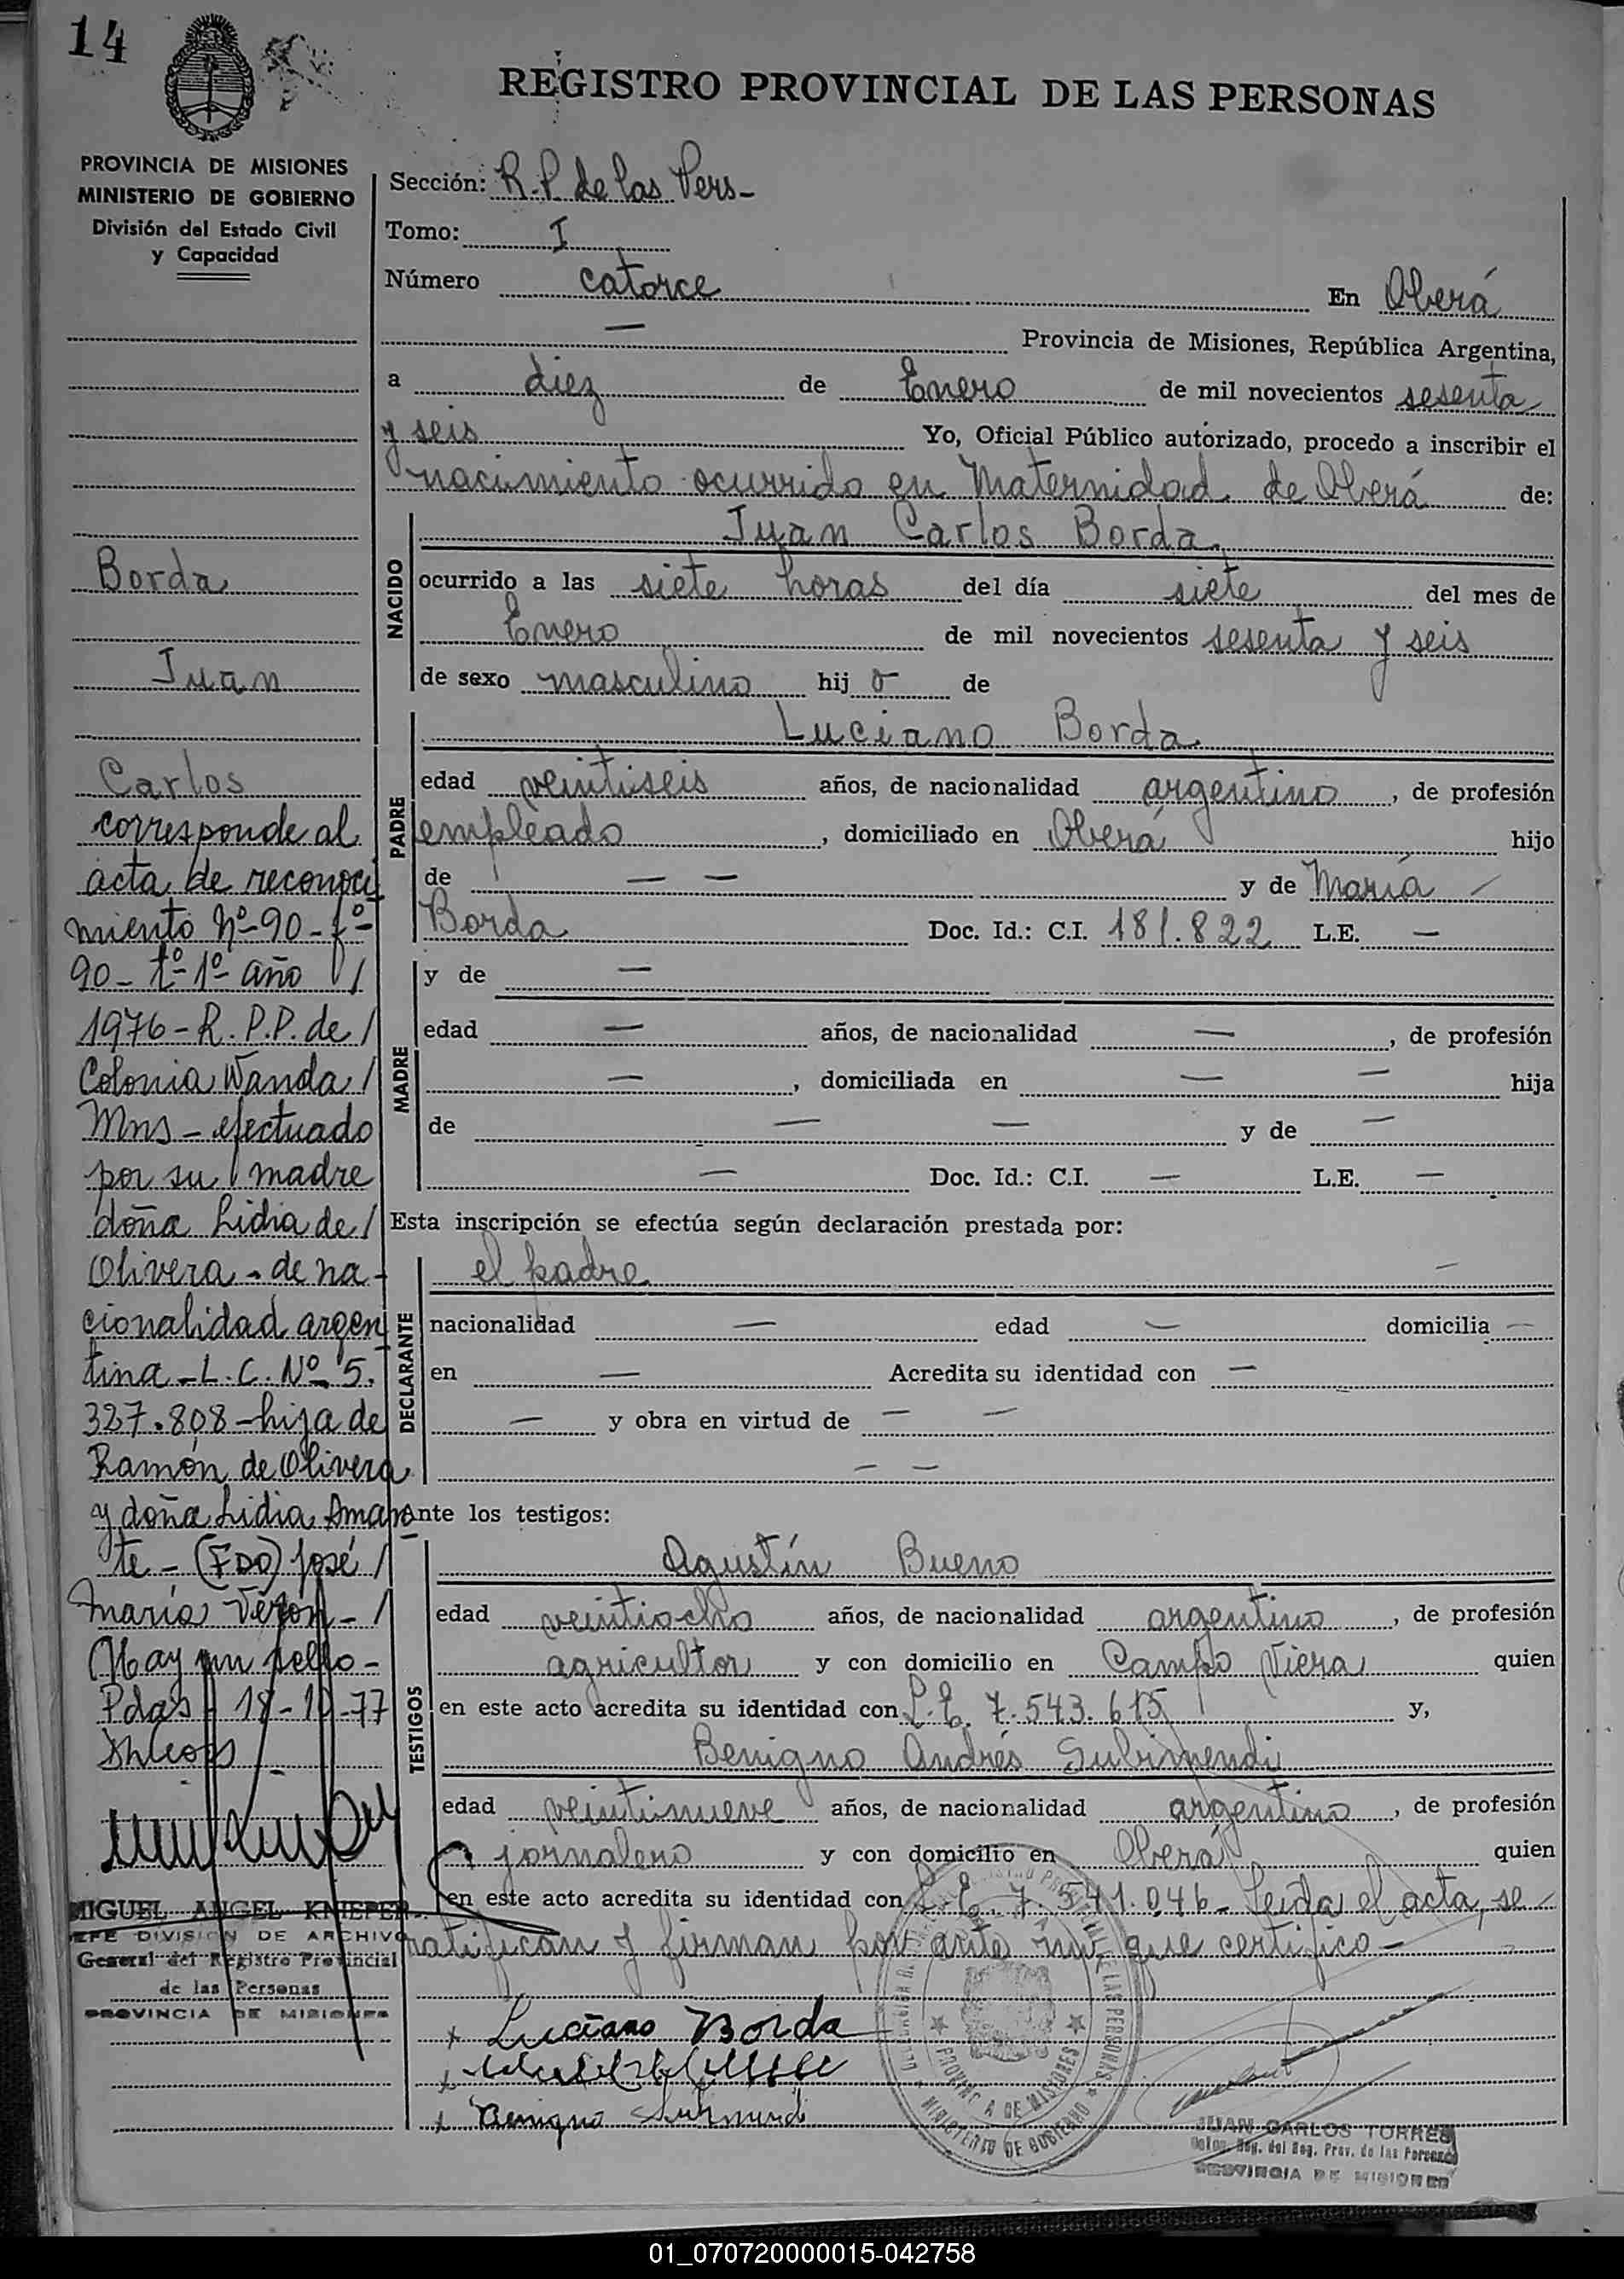 14
REGISTRO PROVINCIAL DE LAS PERSONAS
PROVINCIA DE MISIONES
MINISTERIO DE GOBIERNO
División del Estado Civil
y Capacidad
Borda
Juan
Carlos
corresponde al
acta de reconoci
miento Nº-90-fº-
90-tº-1º año /
1976-R.P.P. de /
Colonia Wanda /
Mns-efectuado
por su madre
doña Lidia de /
Olivera - de na-
cionalidad argen
tina-L.C. Nº 5.
327.808-hija de
Ramón de Olivera
y doña Lidia Amaran
te-(FDO) José /
María Verón- /
Hay un sello-
Pdas-18-10-77
MIGUEL ANGEL KNIEPER
JEFE DIVISION DE ARCHIVO
General del Registro Provincial
de las Personas
PROVINCIA DE MISIONES
Sección: R.P. de las Pers-
Tomo: I
Número catorce En Oberá
— Provincia de Misiones, República Argentina,
a diez de Enero de mil novecientos sesenta
y seis Yo, Oficial Público autorizado, procedo a inscribir el
nacimiento ocurrido en Maternidad de Oberá de:
NACIDO
Juan Carlos Borda
ocurrido a las siete horas del día siete del mes de
Enero de mil novecientos sesenta y seis
de sexo masculino hijo de
PADRE
Luciano Borda
edad veintiseis años, de nacionalidad argentino, de profesión
empleado, domiciliado en Oberá hijo
de — — y de María
Borda Doc. Id.: C.I. 181.822 L.E. —
MADRE
y de —
edad — años, de nacionalidad —, de profesión
—, domiciliada en — — hija
de — — y de —
— Doc. Id.: C.I. — L.E. —
Esta inscripción se efectúa según declaración prestada por:
DECLARANTE
el padre —
nacionalidad — edad — domicilia —
en — Acredita su identidad con —
— y obra en virtud de — —
— —
ante los testigos:
TESTIGOS
Agustín Bueno
edad veintiocho años, de nacionalidad argentino, de profesión
agricultor y con domicilio en Campo Viera quien
en este acto acredita su identidad con L.E. 7.543.615 y,
Benigno Andrés Subimendi
edad veintinueve años, de nacionalidad argentino, de profesión
jornalero y con domicilio en Oberá quien
en este acto acredita su identidad con L.E. 7.541.046- Leída el acta, se
ratifican y firman por ante mi que certifico-
x Luciano Borda
x
x Benigno Subimendi
PROVINCIA DE MISIONES
MINISTERIO DE GOBIERNO
JUAN CARLOS TORRES
PROVINCIA DE MISIONES
01_070720000015-042758